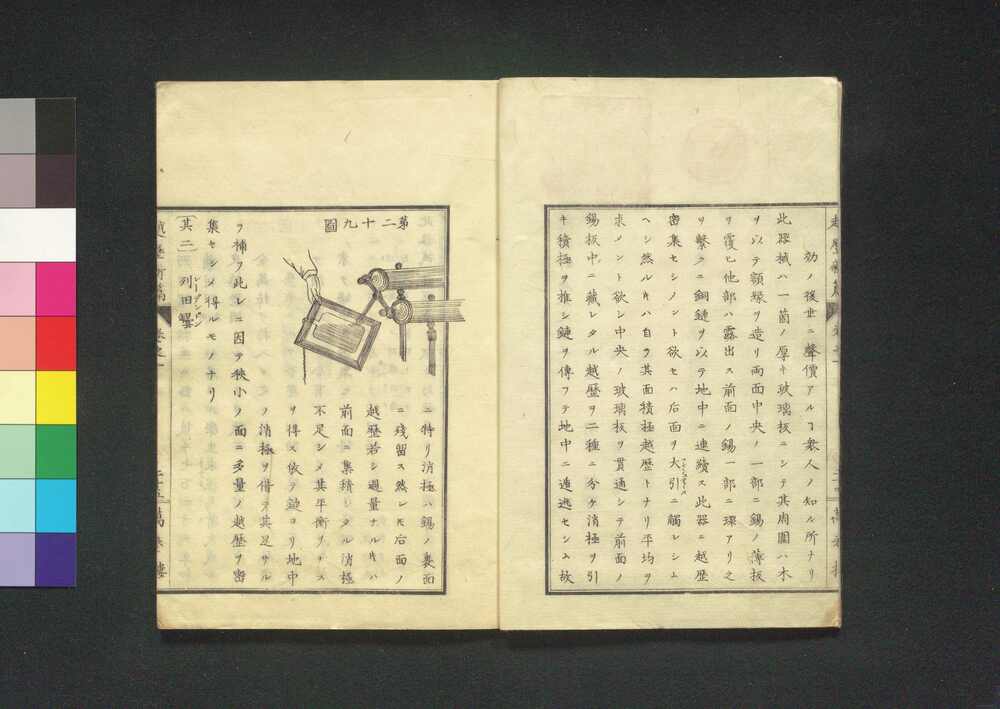 効ノ後世ニ聲價アルヿ衆人ノ知ル所ナリ
此器械ハ一箇ノ厚キ玻璃板ニシテ其周圍ハ木
ヲ以テ額縁ヲ造リ両面中央ノ一部ニ錫ノ薄板
ヲ覆ヒ他部ハ露出ス前面ノ錫一部ニ環アリ之
ヲ繋クニ銅鏈ヲ以テ地中ニ連續ス此器ニ越歴
密集セシメント欲セハ后面ヲ大引ニ觸レシム
ヘシ然ルキハ自ラ其面積極越歴トナリ平均ヲ
求メント欲シ中央ノ玻璃板ヲ貫通シテ前面ノ
錫板中ニ藏レタル越歴ヲ二種ニ分ケ消極ヲ引
キ積極ヲ推シ鏈ヲ傳フテ地中ニ遁逃セシム故
第二十九圖
ニ特リ消極ハ錫ノ裏面
ニ残留ス然レモ后面ノ
越歴若シ過量ナルキハ
前面ニ集積シタル消極
不足シメ其平衡ヲナス
ヲ得ス依テ鏈ヨリ地中
ノ消極ヲ借テ其足サル
ヲ補フ此レニ因テ狹小ノ面ニ多量ノ越歴ヲ密
集セシメ得ルモノナリ
〔其二〕列田